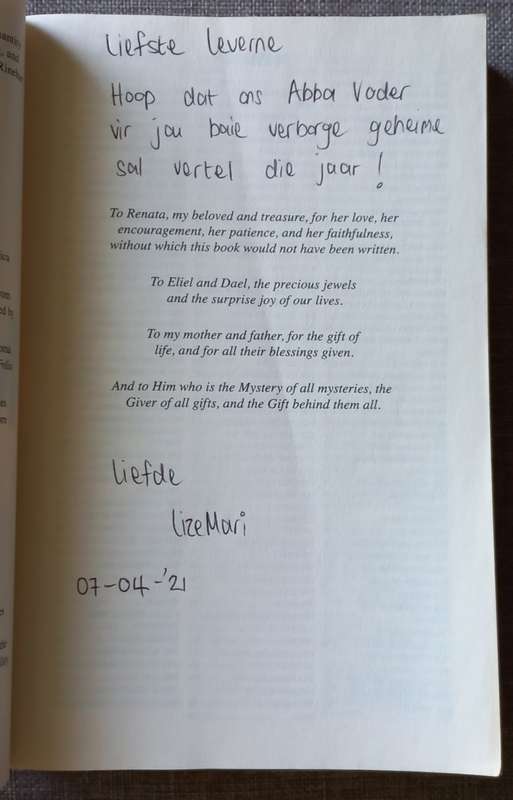 liefste leverne
Hoop dat ons Abba Vader
vir jou baie verborge geheime
sal vertel die jaar!
To Renata, my beloved and treasure, for her love, her
encouragement, her patience, and her faithfulness,
without which this book would not have been written.
To Eliel and Dael, the precious jewels
and the surprise joy of our lives.
To my mother and father, for the gift of
life, and for all their blessings given.
And to Him who is the Mystery of all mysteries, the
Giver of all gifts, and the Gift behind them all.
liefde
lizeMari
07-04-'21